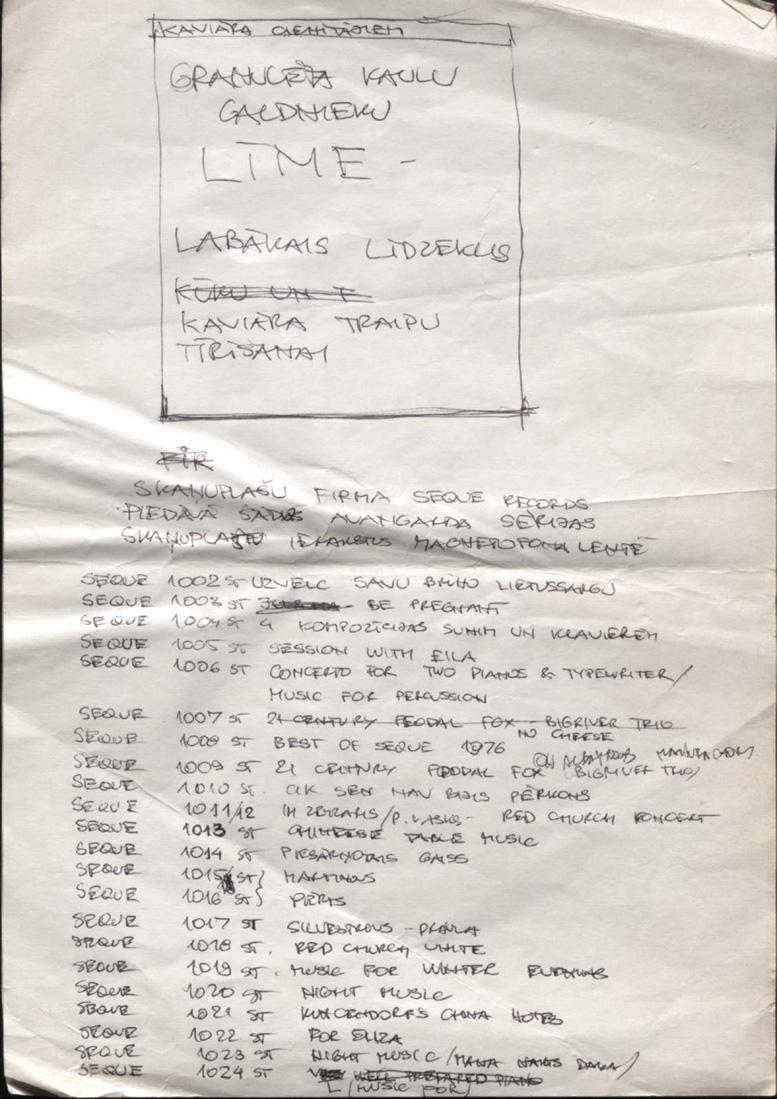 KAVIĀRA CIENĪTĀJIEM
GRANULĒTA KAULU
GALDNIEKU
LĪME -
LABĀKAIS LĪDZEKLIS
KŪKU UN T
KAVIĀRA TRAIPU
TĪRĪŠANAI
FIR
SKAŅUPLAŠU FIRMA SEQUE RECORDS
PIEDĀVĀ ŠĀDAS AVANGARDA SĒRIJAS
SKAŅUPLAŠU IERAKSTUS MAGNETOFONA LENTĒ
SEQUE 1002 ST UZVELC SAVU BRŪNO LIETUSSARGU
SEQUE 1003 ST BE PREGNANT
SEQUE 1004 ST 4 KOMPOZĪCIJAS SUNIM UN KLAVIERĒM
SEQUE 1005 ST SESSION WITH EILA
SEQUE 1006 ST CONCERTO FOR TWO PIANOS & TYPEWRITER/
MUSIC FOR PERCUSSION
SEQUE 1007 ST 21 CENTURY FEODAL FOX - BIGRIVER TRIO
NO CHEESE
SEQUE 1008 ST BEST OF SEQUE 1976
SEQUE 1009 ST 21 CENTURY FEODAL FOX BIGRIVER TRIO/
SEQUE 1010 ST. CIK SEN NAV BIJIS PĒRKONS
SEQUE 1011/12 - RED CHURCH KONCERT
SEQUE 1013 ST CHINEESE TABLE MUSIC
SEQUE 1014 ST PIESĀRŅOTAIS GAISS
SEQUE 1015 ST} MARTINUS
SEQUE 1016 ST} PĒRIS
SEQUE 1017 ST SILVESTROUS -
SEQUE 1018 ST. RED CHURCH WHITE
SEQUE 1019 ST. MUSIC FOR WINTER EVENINGS
SEQUE 1020 ST NIGHT MUSIC
SEQUE 1021 ST CHINA NOTES
SEQUE 1022 ST FOR ELIZA
SEQUE 1023 ST NIGHT MUSIC / MANA NAKTS DAĻA/
SEQUE 1024 ST WELL PREPARED PIANO
(MUSIC FOR)